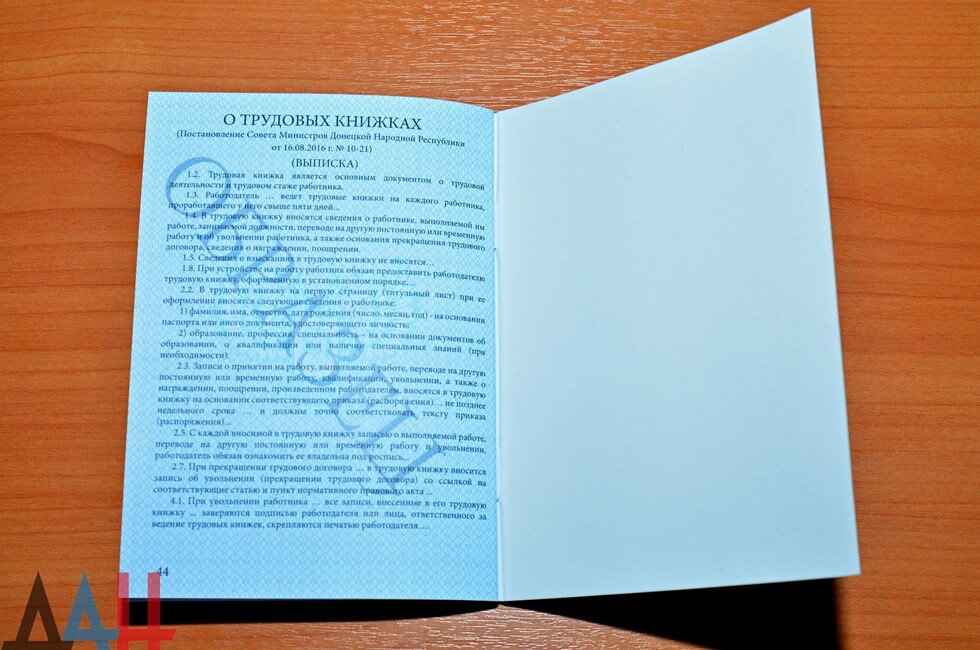 О ТРУДОВЫХ КНИЖКАХ
(Постановление Совета Министров Донецкой Народной Республики
от 16.08.2016 г. № 10-21)
(ВЫПИСКА)
1.2. Трудовая книжка является основным документом о трудовой
деятельности и трудовом стаже работника.
1.3. Работодатель … ведет трудовые книжки на каждого работника,
проработавшего у него свыше пяти дней...
1.4. В трудовую книжку вносятся сведения о работнике, выполняемой им
работе, занимаемой должности, переводе на другую постоянную или временную
работу и об увольнении работника, а также основания прекращения трудового
договора, сведения о награждении, поощрении.
1.5. Сведения о взысканиях в трудовую книжку не вносятся…
1.8. При устройстве на работу работник обязан предоставить работодателю
трудовую книжку, оформленную в установленном порядке…
2.2. В трудовую книжку на первую страницу (титульный лист) при ее
оформлении вносятся следующие сведения о работнике:
1) фамилия, имя, отчество, дата рождения (число, месяц, год) - на основании
паспорта или иного документа, удостоверяющего личность;
2) образование, профессия, специальность - на основании документов об
образовании, о квалификации или наличии специальных знаний (при
необходимости).
2.3. Записи о принятии на работу, выполняемой работе, переводе на другую
постоянную или временную работу, квалификации, увольнении, а также о
награждении, поощрении, произведенном работодателем, вносятся в трудовую
книжку на основании соответствующего приказа (распоряжения)… не позднее
недельного срока … и должны точно соответствовать тексту приказа
(распоряжения)...
2.5. С каждой вносимой в трудовую книжку записью о выполняемой работе,
переводе на другую постоянную или временную работу и увольнении,
работодатель обязан ознакомить ее владельца под роспись...
2.7. При прекращении трудового договора … в трудовую книжку вносится
запись об увольнении (прекращении трудового договора) со ссылкой на
соответствующие статью и пункт нормативного правового акта ...
4.1. При увольнении работника … все записи, внесенные в его трудовую
книжку ... заверяются подписью работодателя или лица, ответственного за
ведение трудовых книжек, скрепляются печатью работодателя….
ОБРАЗЕЦ
44
ДАН